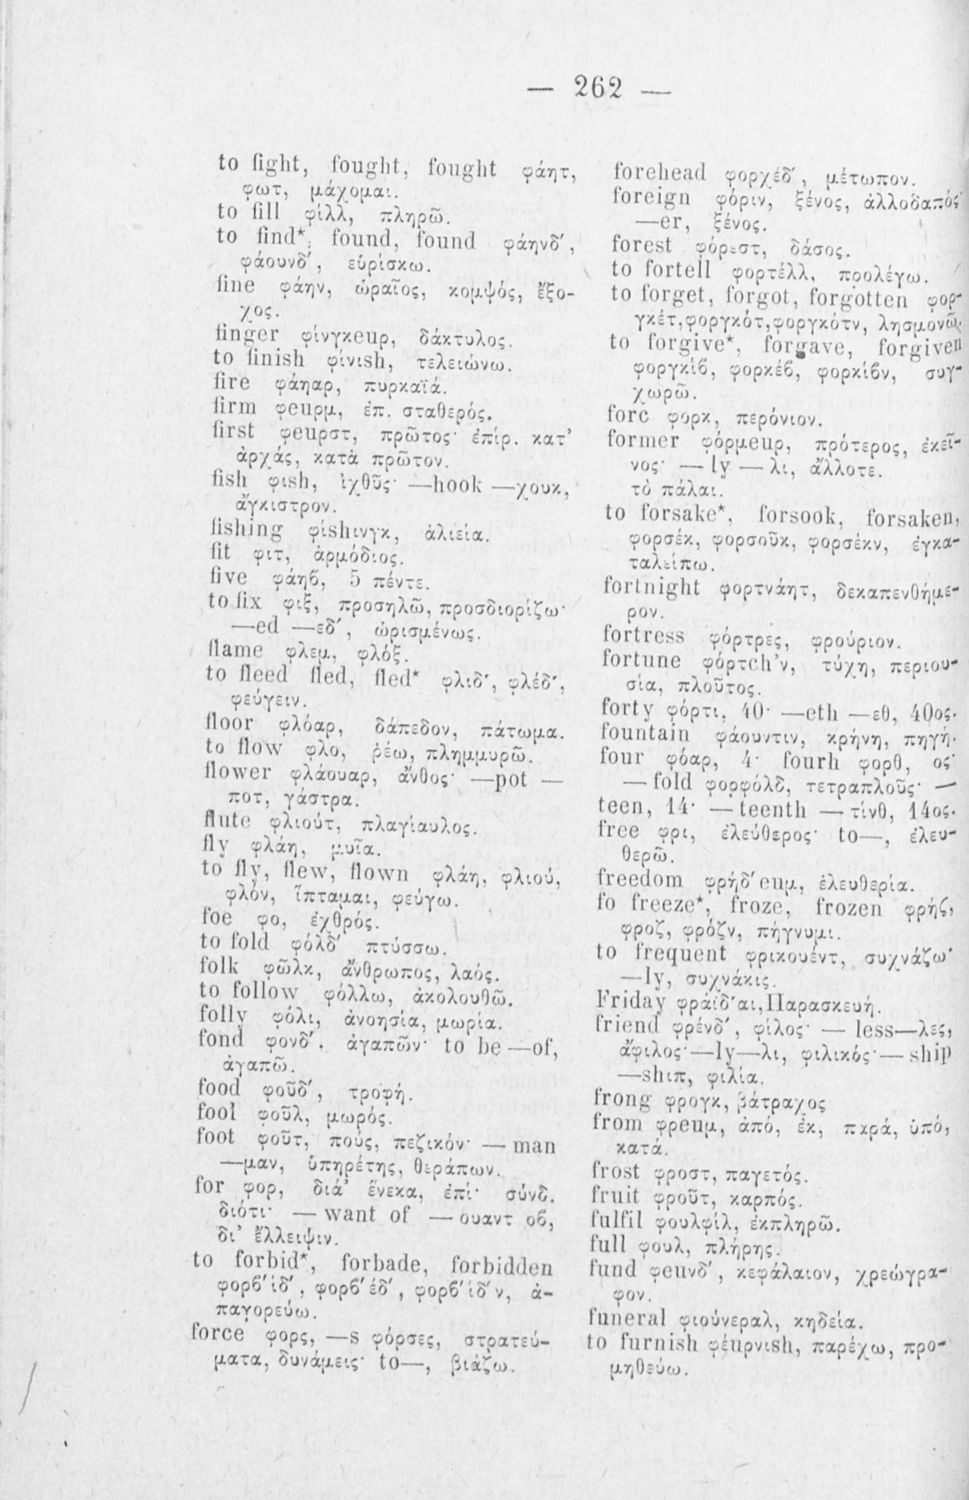 — 262 —
to fight, fought, fought φάητ,
φωτ, μάχομαι.
to fill φίλλ, πληρῶ.
to find*, found, found φάηνδ',
φάουνδ', εὑρίσκω.
fine φάην, ὡραῖος, κομψός, ἔξο-
χος.
finger φίνγκeuρ, δάκτυλος.
to finish φίνιsh, τελειώνω.
fire φάηαρ, πυρκαϊά.
firm φeuρμ, ἐπ. σταθερός.
first φeuρστ, πρῶτος· ἐπίρ. κατ'
ἀρχάς, κατὰ πρῶτον.
fish φιsh, ἰχθῦς· —hook —χουκ,
ἄγκιστρον.
fishing φίshινγκ, ἁλιεία.
fit φιτ, ἁρμόδιος.
five φάηϐ, 5 πέντε.
to fix φιξ, προσηλῶ, προσδιορίζω·
—ed —εδ', ὡρισμένως.
flame φλεμ, φλόξ.
to fleed fled, fled* φλιδ', φλέδ',
φεύγειν.
floor φλόαρ, δάπεδον, πάτωμα.
to flow φλο, ῥέω, πλημμυρῶ.
flower φλάουαρ, ἄνθος· —pot —
ποτ, γάστρα.
flute φλιούτ, πλαγίαυλος.
fly φλάη, μυῖα.
to fly, flew, flown φλάη, φλιού,
φλόν, ἵπταμαι, φεύγω.
foe φο, ἐχθρός.
to fold φόλδ' πτύσσω.
folk φῶλκ, ἄνθρωπος, λαός.
to follow φόλλω, ἀκολουθῶ.
folly φόλι, ἀνοησία, μωρία.
fond φονδ'. ἀγαπῶν· to be —of,
ἀγαπῶ.
food φοῦδ', τροφή.
fool φοῦλ, μωρός.
foot φοῦτ, πούς, πεζικόν· —man
—μαν, ὑπηρέτης, θεράπων.
for φορ, διά' ἕνεκα, ἐπί· σύνδ.
διότι· —want of —ουαντ οϐ,
δι' ἔλλειψιν.
to forbid*, forbade, forbidden
φορϐ'ίδ', φορϐ'έδ', φορϐ'ίδ'ν, ἀ-
παγορεύω.
force φορς, —s φόρσες, στρατεύ-
ματα, δυνάμεις· to—, βιάζω.
forehead φορχέδ', μέτωπον.
foreign φόριν, ξένος, ἀλλοδαπός
—er, ξένος.
forest φόρεστ, δάσος.
to fortell φορτέλλ, προλέγω.
to forget, forgot, forgotten φορ-
γκέτ,φοργκότ,φοργκότν, λησμονῶ.
to forgive*, forgave, forgiven
φοργκίϐ, φορκέϐ, φορκίϐν, συγ-
χωρῶ.
forc φορκ, περόνιον.
former φόρμeuρ, πρότερος, ἐκεῖ-
νος· —ly —λι, ἄλλοτε.
τὸ πάλαι.
to forsake*, forsook, forsaken,
φορσέκ, φορσοῦκ, φορσέκν, ἐγκα-
ταλείπω.
fortnight φορτνάητ, δεκαπενθήμε-
ρον.
fortress φόρτρες, φρούριον.
fortune φόρτch'ν, τύχη, περιου-
σία, πλοῦτος.
forty φόρτι, 40· —eth —εθ, 40ος.
fountain φάουντιν, κρήνη, πηγή.
four φόαρ, 4· fourh φορθ, ος·
—fold φορφόλδ, τετραπλοῦς· —
teen, 14· —teenth —τίνθ, 14ος.
free φρι, ἐλεύθερος· to—, ἐλευ-
θερῶ.
freedom φρήδ'euμ, ἐλευθερία.
fo freeze*, froze, frozen φρήζ,
φροζ, φρόζν, πήγνυμι.
to frequent φρικουέντ, συχνάζω·
—ly, συχνάκις.
Friday φράϊδ'αι,Παρασκευή.
friend φρένδ', φίλος· —less—λες,
ἄφιλος·—ly—λι, φιλικός·—ship
—shιπ, φιλία.
frong φρογκ, βάτραχος
from φρeuμ, ἀπό, ἐκ, παρά, ὑπό,
κατά.
frost φροστ, παγετός.
fruit φροῦτ, καρπός.
fulfil φουλφίλ, ἐκπληρῶ.
full φουλ, πλήρης.
fund φeuνδ', κεφάλαιον, χρεώγρα-
φον.
funeral φιούνεραλ, κηδεία.
to furnish φέuρνιsh, παρέχω, προ-
μηθεύω.